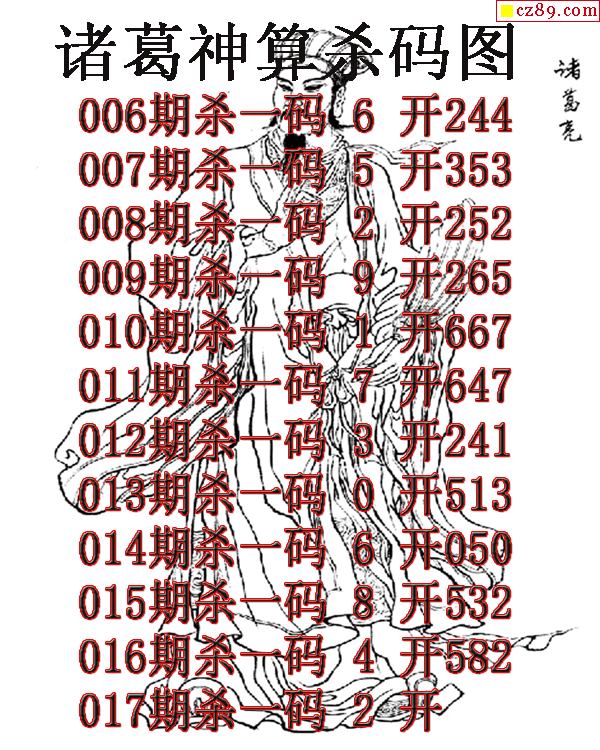 cz89.com
诸葛神算杀码图
诸葛亮
006期杀一码 6 开244
007期杀一码 5 开353
008期杀一码 2 开252
009期杀一码 9 开265
010期杀一码 1 开667
011期杀一码 7 开647
012期杀一码 3 开241
013期杀一码 0 开513
014期杀一码 6 开050
015期杀一码 8 开532
016期杀一码 4 开582
017期杀一码 2 开